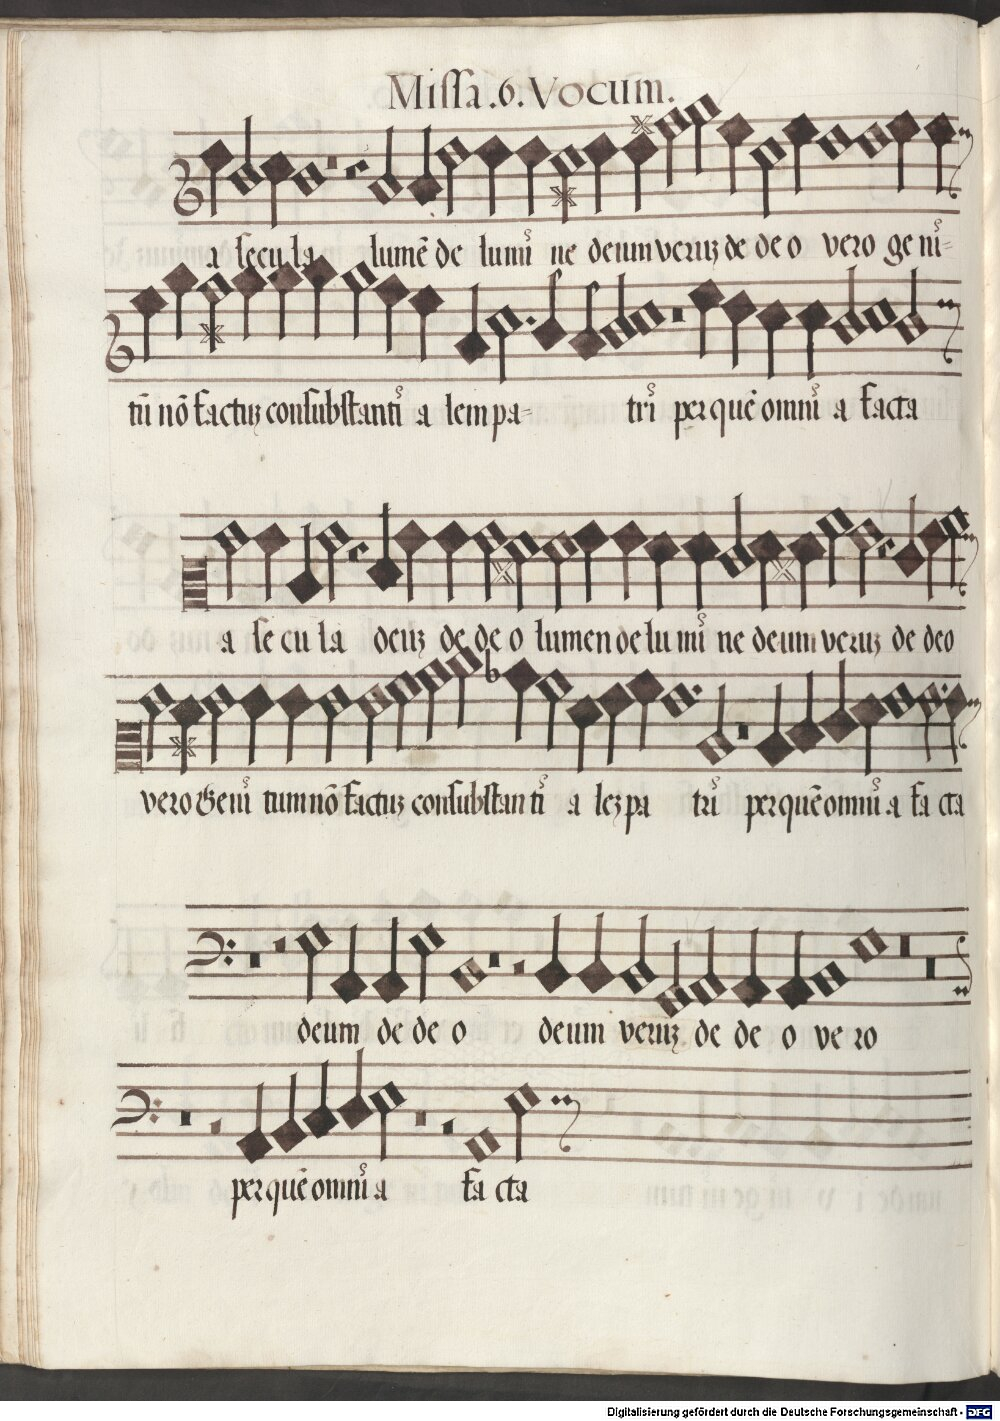 Missa.6.Vocum.
a secu la lumē de lumi ne deum veruȝ de de o vero ge ni-
tū nō factuȝ consubstanti a lem pa- tri per quē omni a facta
a se cu la deuȝ de de o lumen de lu mi ne deum veruȝ de deo
vero Geni tum nō factuȝ consubstan ti a leȝ pa tri per quē omni a fa cta
deum de de o deum veruȝ de de o ve ro
per quē omni a fa cta
Digitalisierung gefördert durch die Deutsche Forschungsgemeinschaft - DFG